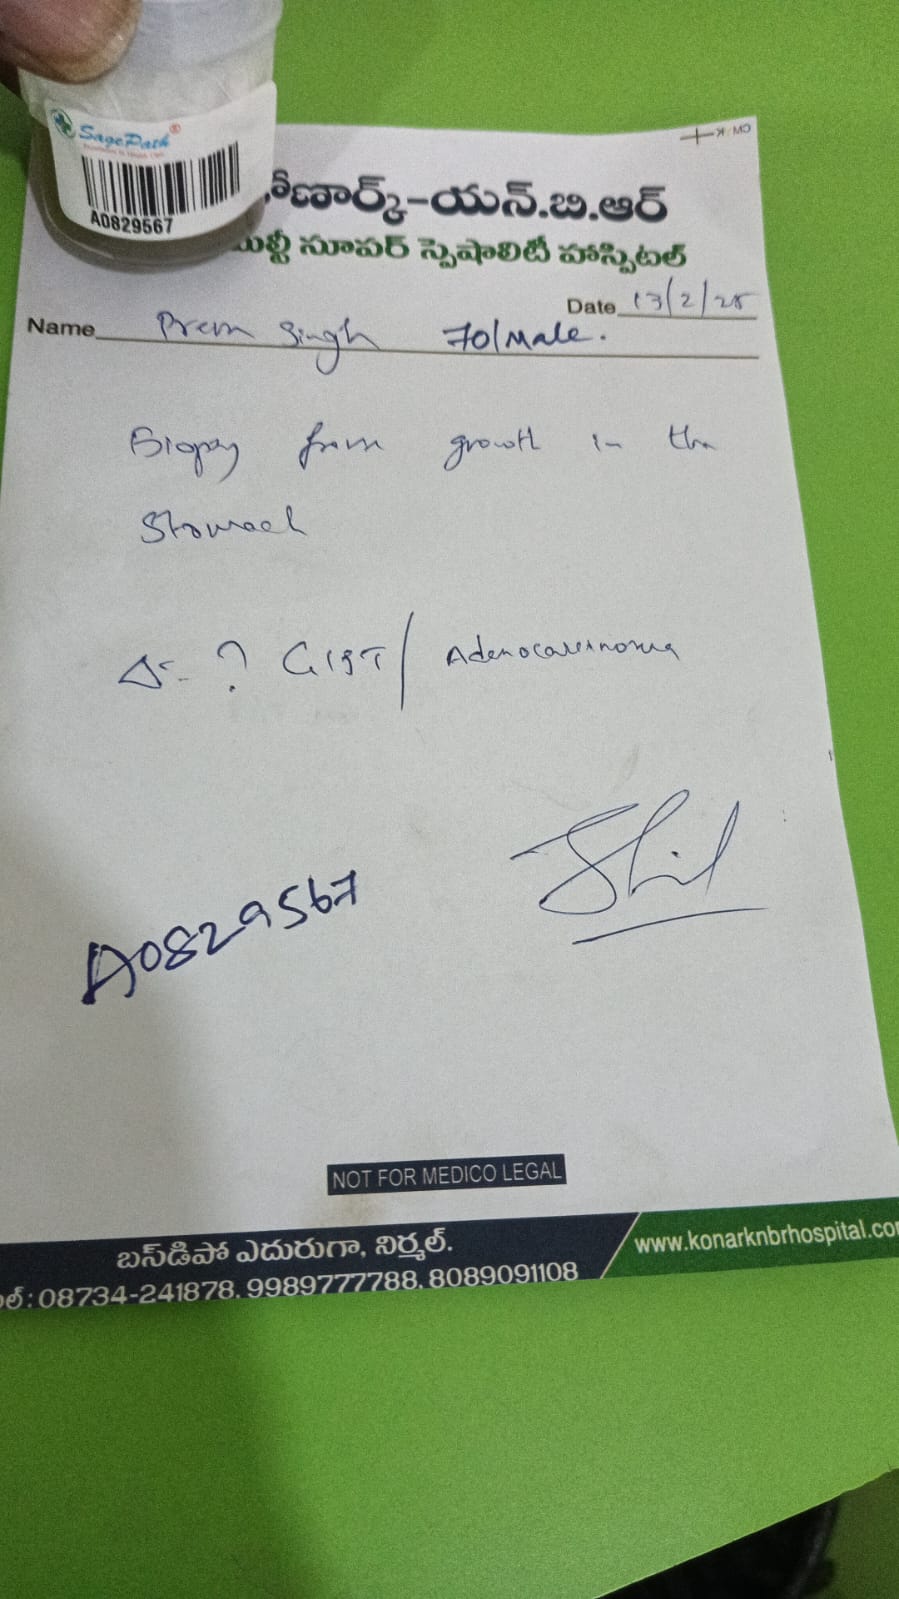 SagePath®
A0829567
కోణార్క్-యన్.బి.ఆర్
మల్టీ సూపర్ స్పెషాలిటీ హాస్పిటల్
Date 13/2/25
Name Prem Singh 70/Male.
Biopsy from growth in the
Stomach
Δ- ? GIST/ Adenocarcinoma
A0829567
NOT FOR MEDICO LEGAL
బస్‌డిపో ఎదురుగా, నిర్మల్.
www.konarknbrhospital.co
08734-241878, 9989777788, 8089091108